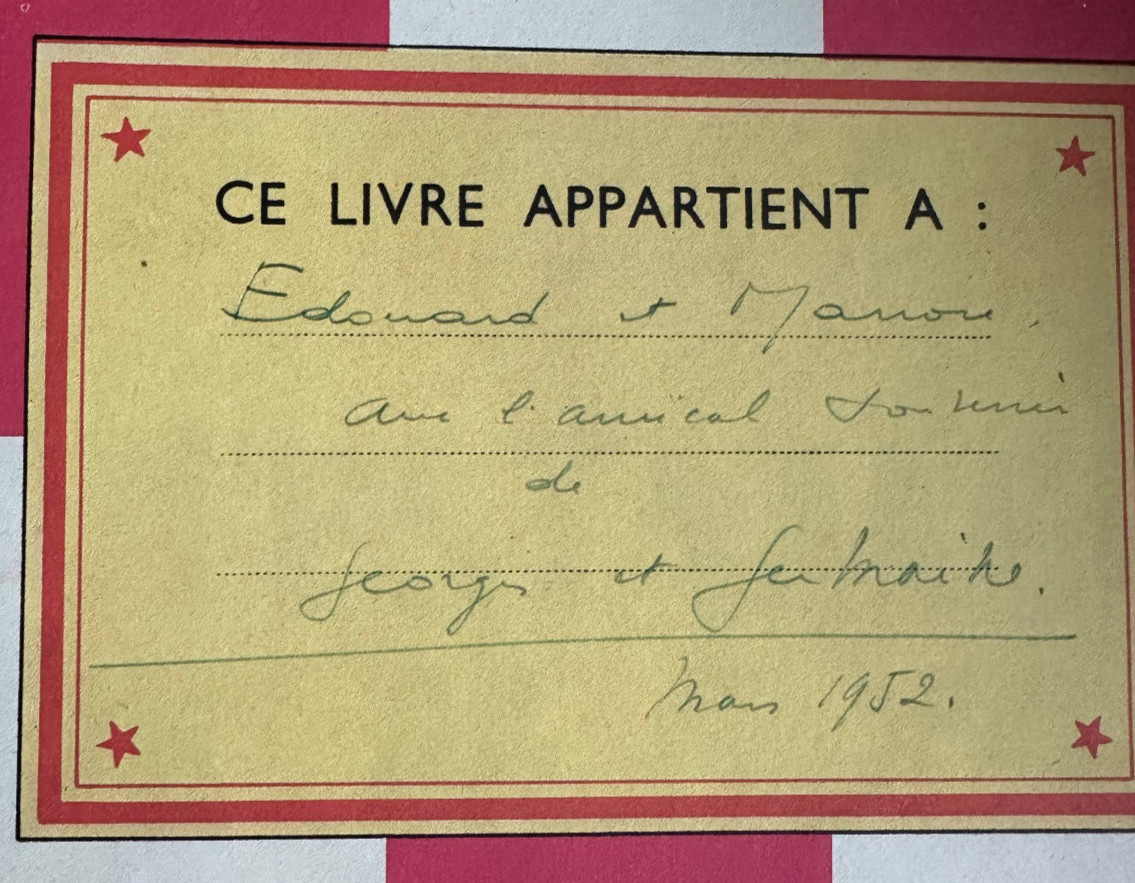 CE LIVRE APPARTIENT A :
Edouard et
avec l'amical souvenir
de
Georges et Germaine.
Mars 1952.